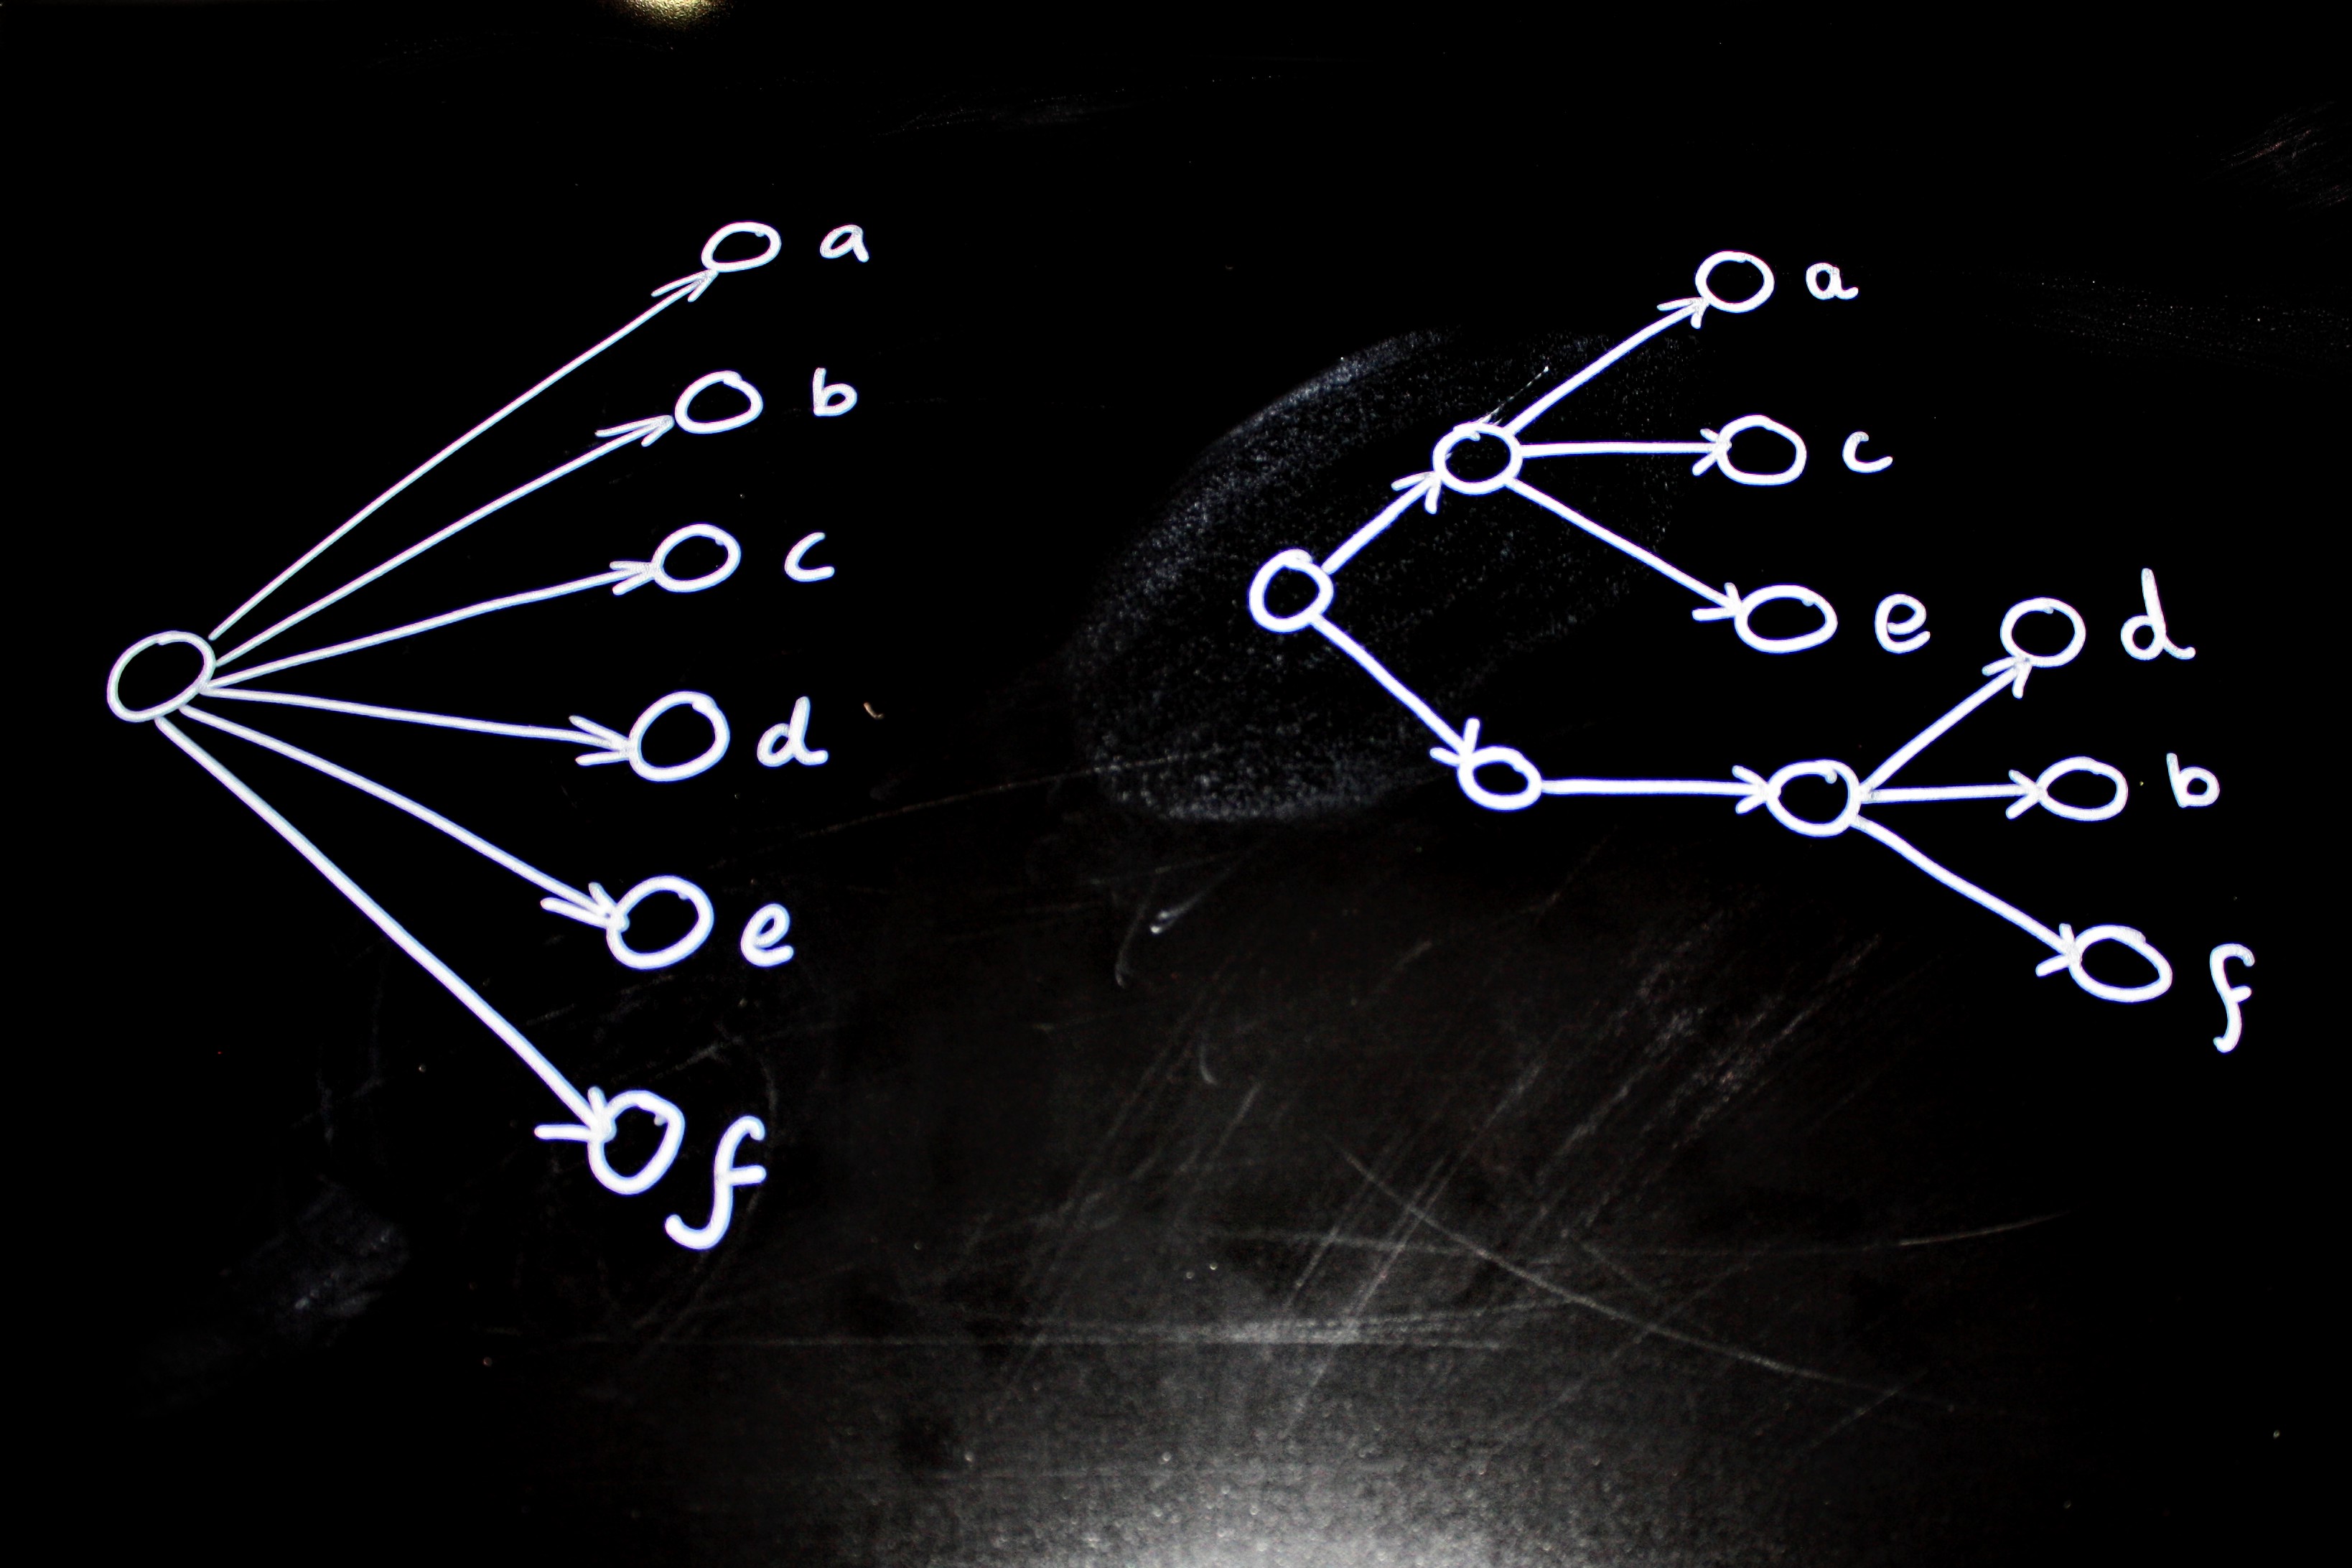 a
b
c
d
e
f
a
c
e
d
b
f